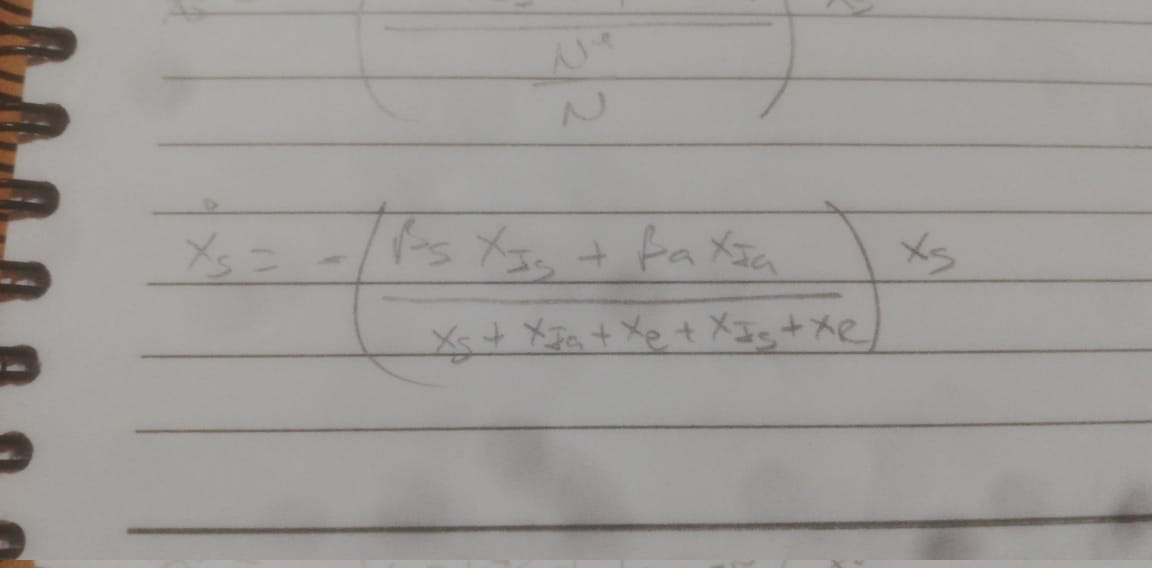 N*
N
ẋ_S = - ( (β_S x_{I_S} + β_a x_{I_a}) / (x_S + x_{I_a} + x_e + x_{I_S} + x_R) ) x_S